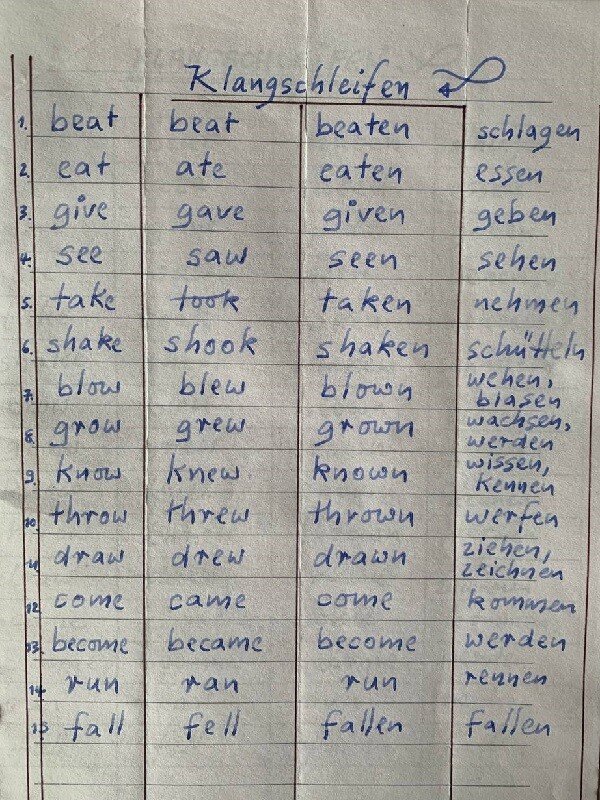 Klangschleifen
1. beat beat beaten schlagen
2. eat ate eaten essen
3. give gave given geben
4. see saw seen sehen
5. take took taken nehmen
6. shake shook shaken schütteln
7. blow blew blown wehen, blasen
8. grow grew grown wachsen, werden
9. know knew known wissen, kennen
10. throw threw thrown werfen
11. draw drew drawn ziehen, zeichnen
12. come came come kommen
13. become became become werden
14. run ran run rennen
15 fall fell fallen fallen